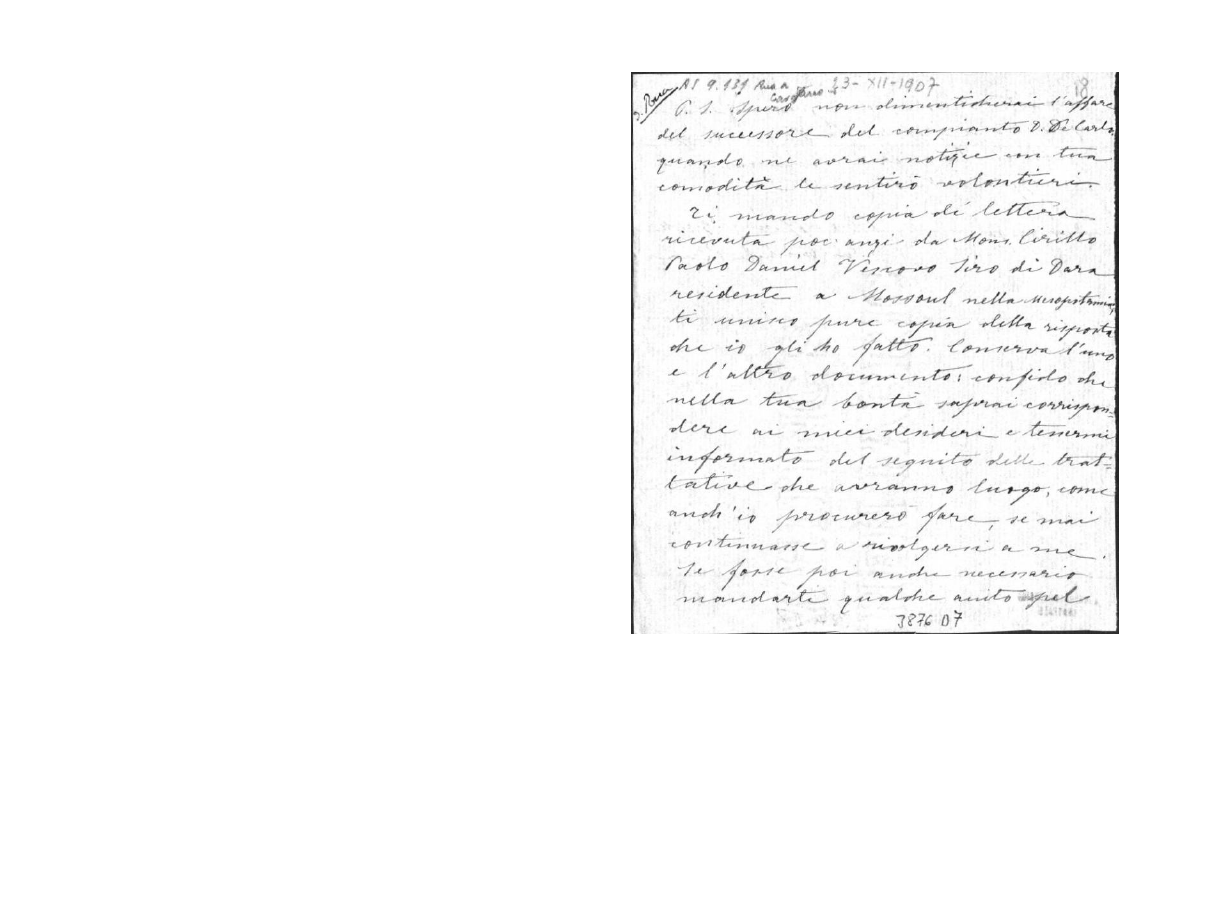 D. Rua
AS 9.131 Rua a
Cavatorta
23-XII-1907
18
P. S. Spero non dimenticherai l'affare
del successore del compianto D. De Carlo,
quando ne avrai notizie con tua
comodità le sentirò volontieri.
Ti mando copia di lettera
ricevuta poc'anzi da Mons. Cirillo
Paolo Daniel Vescovo Siro di Dara
residente a Mossoul nella Mesopotamia,
ti unisco pure copia della risposta
che io gli ho fatto. Conserva l'uno
e l'altro documento: confido che
nella tua bontà saprai corrispon=
dere ai miei desideri e tenermi
informato del seguito delle trat=
tative che avranno luogo, come
anch'io procurerò fare, se mai
continuasse a rivolgersi a me.
Se fosse poi anche necessario
mandarti qualche aiuto pel
3876 D7